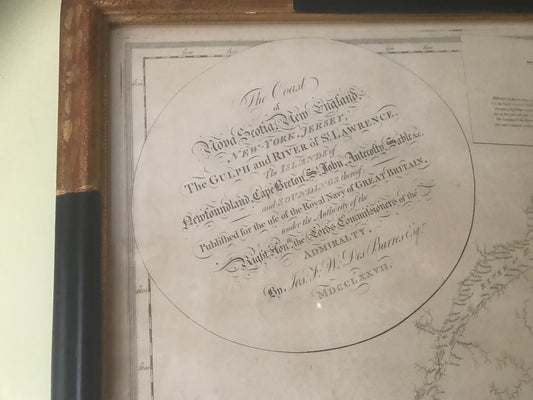 The Coast
of
Nova Scotia, New England,
NEW-YORK, JERSEY,
THE GULPH and RIVER of St. LAWRENCE,
The ISLANDS of
Newfoundland, Cape Breton, St. John, Antecosty, Sable &c.
and SOUNDINGS thereof
Published for the use of the Royal Navy of GREAT BRITAIN,
under the Authority of the
Right Honble. the Lords Commissioners of the
ADMIRALTY,
By, Jos. F. W. Des Barres Esqr.
MDCCLXXVII.
RIVER